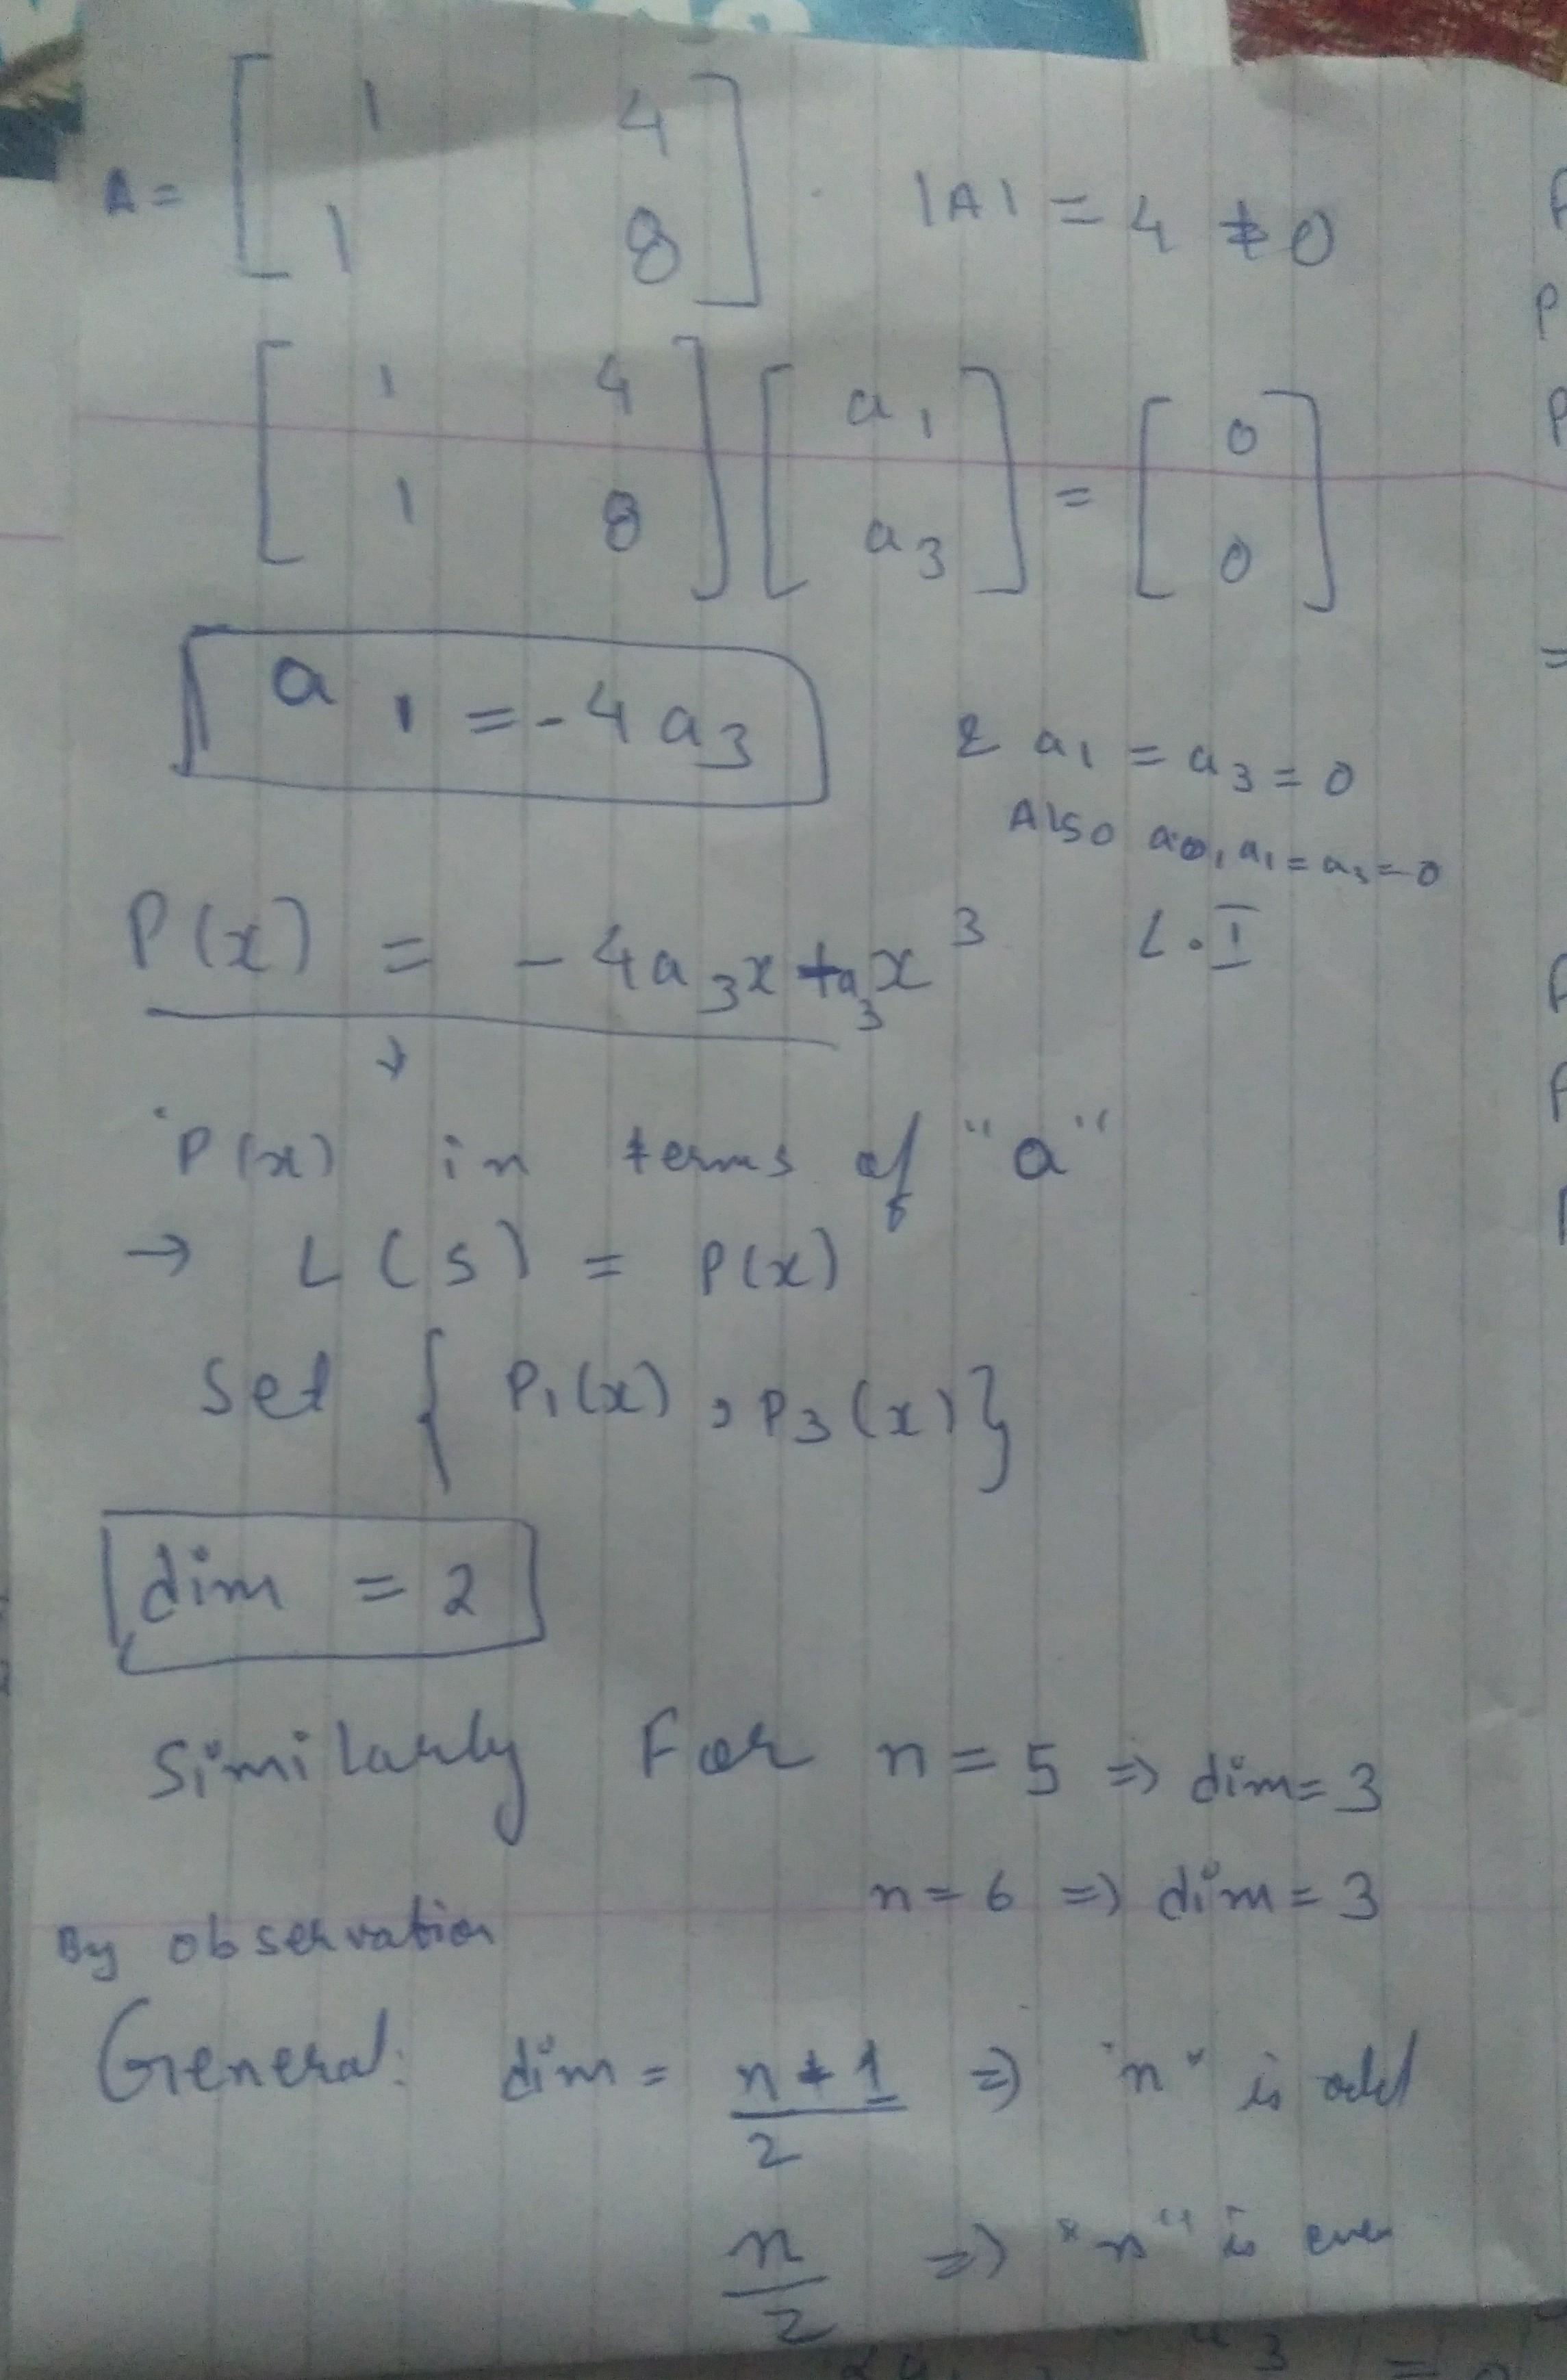 A = [ 1 4
1 8 ] . |A| = 4 ≠ 0
[ 1 4
1 8 ] [ a1
a3 ] = [ 0
0 ]
a1 = -4a3
& a1 = a3 = 0
Also a0, a1 = a3 = 0
P(x) = -4a3x + a3x^3 L.I
P(x) in terms of "a"
→ L(S) = P(x)
Set { P1(x), P3(x) }
dim = 2
Similarly For n = 5 ⇒ dim = 3
n = 6 ⇒ dim = 3
By observation
General: dim = n+1/2 ⇒ "n" is odd
n/2 ⇒ "n" is even